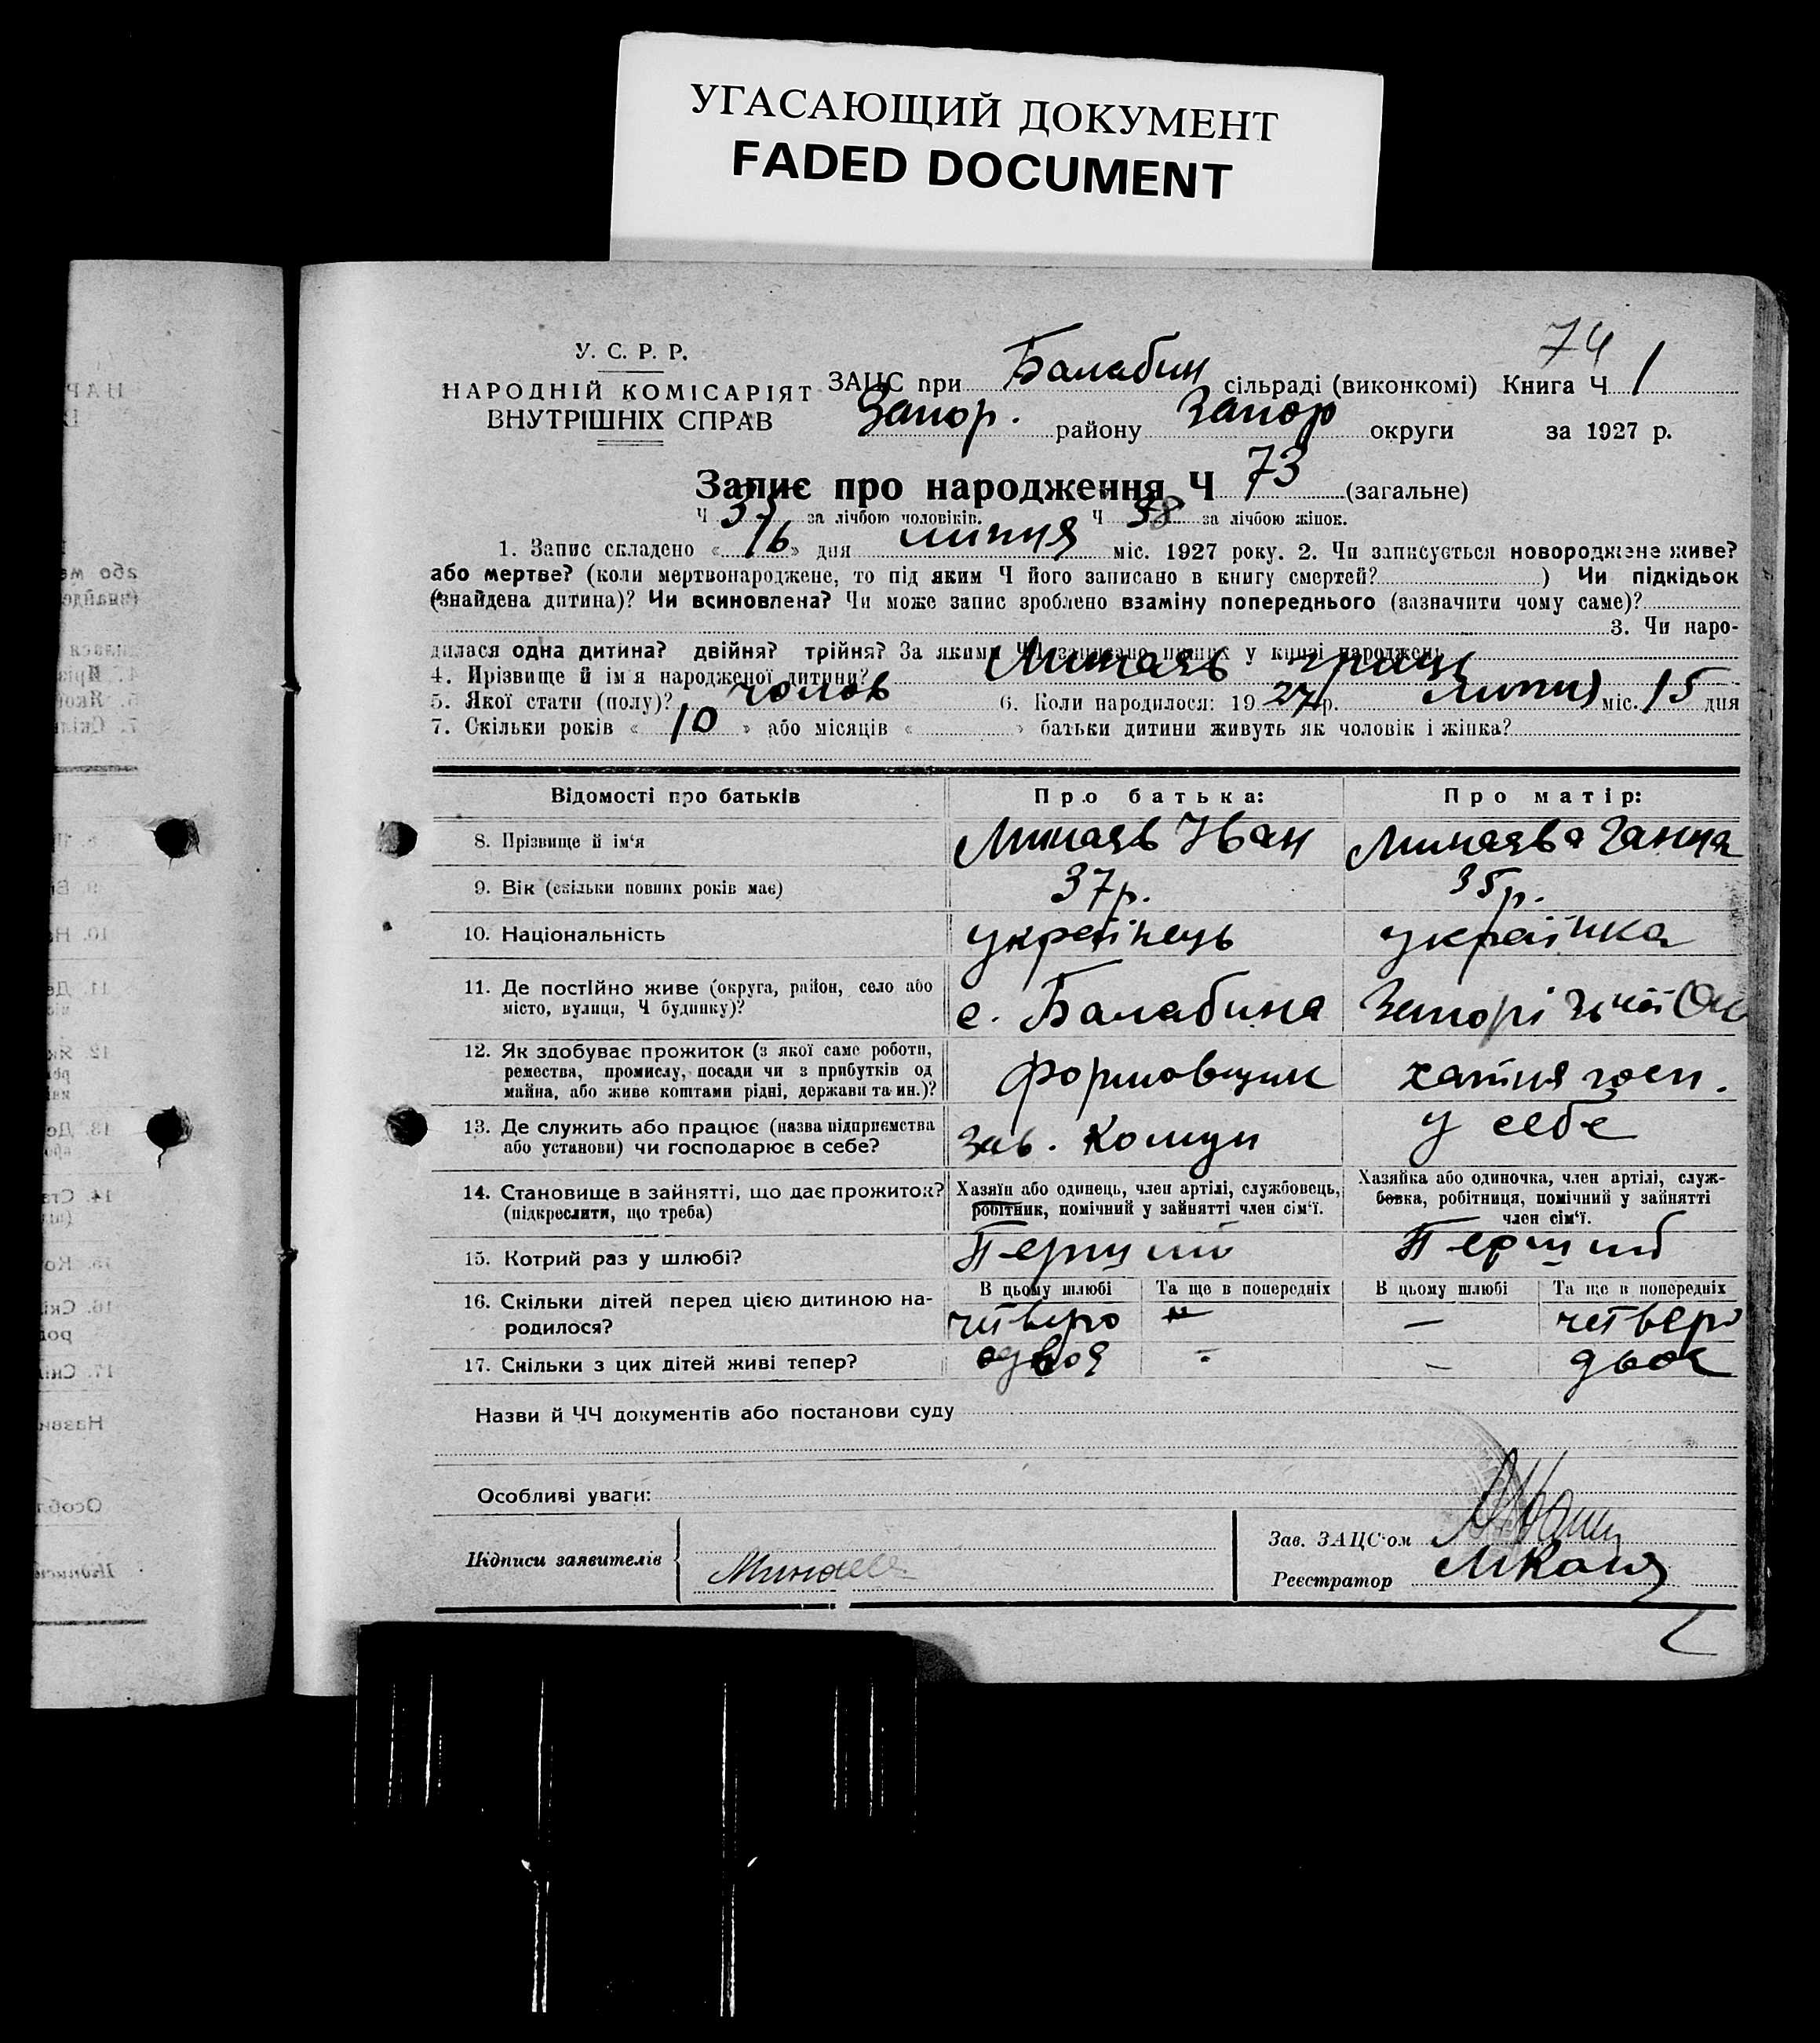 УГАСАЮЩИЙ ДОКУМЕНТ
FADED DOCUMENT
74
У. С. Р. Р.
НАРОДНІЙ КОМІСАРІЯТ
ВНУТРІШНІХ СПРАВ
ЗАЦС при Балабин сільраді (виконкомі) Книга Ч 1
Запор. району Запор округи за 1927 р.
Запис про народження Ч 73 (загальне)
Ч за лічбою чоловіків. Ч 38 за лічбою жінок.
1. Запис складено « 16 » дня липця міс. 1927 року. 2. Чи записується новороджене живе?
або мертве? (коли мертвонароджене, то під яким Ч його записано в книгу смертей? ) Чи підкідьок
(знайдена дитина)? Чи всиновлена? Чи може запис зроблено взаміну попереднього (зазначити чому саме)?
3. Чи наро-
дилася одна дитина? двійня? трійня? За якими ЧЧ записано инших у книзі народжень
4. Прізвище й ім'я народженої дитини? Минаяв Гриць
5. Якої стати (полу)? чолов 6. Коли народилося: 1927 р. липця міс. 15 дня
7. Скільки років « 10 » або місяців « » батьки дитини живуть як чоловік і жінка?
Відомості про батьків Про батька: Про матір:
8. Прізвище й ім'я Минаяв Иван Минаява Ганна
9. Вік (скільки повних років має) 37 р. 35 р.
10. Національність українець українка
11. Де постійно живе (округа, район, село або
місто, вулиця, Ч будинку)? с. Балабина
12. Як здобуває прожиток (з якої саме роботи,
ремества, промислу, посади чи з прибутків од
майна, або живе коштами рідні, держави та ин.)? формовщик хатня госп.
13. Де служить або працює (назва підприємства
або установи) чи господарює в себе? Зав. Комун у себе
14. Становище в зайнятті, що дає прожиток?
(підкреслити, що треба)
Хазяїн або одинець, член артілі, службовець,
робітник, помічний у зайнятті член сім'ї.
Хазяйка або одиночка, член артілі, служ-
бовка, робітниця, помічний у зайнятті
член сім'ї.
15. Котрий раз у шлюбі? Перший Перший
В цьому шлюбі Та ще в попередніх В цьому шлюбі Та ще в попередніх
16. Скільки дітей перед цією дитиною на-
родилося? четверо " — четверо
17. Скільки з цих дітей живі тепер? - — двоє
Назви й ЧЧ документів або постанови суду
Особливі уваги:
Підписи заявителів Минаев
Зав. ЗАЦС'ом
Реєстратор